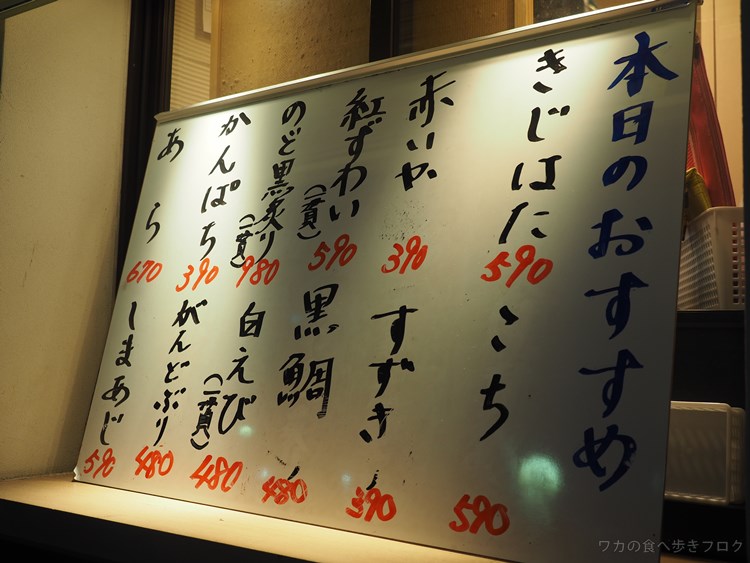 本日のおすすめ
きじはた 590
赤いか 390
紅ずわい(一貫) 590
のど黒炙り(一貫) 980
かんぱち 390
あら 670
こち 590
すずき 390
黒鯛 480
白えび(一貫) 480
がんどぶり 480
しまあじ 590
ワカの食べ歩きブログ